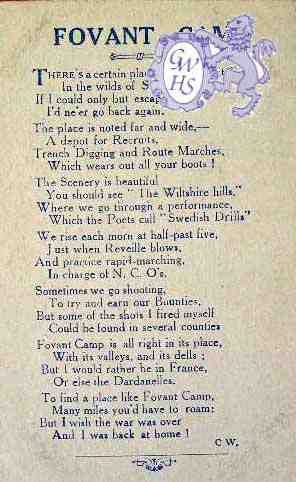 FOVANT CAM
CW
HS
THERE'S a certain plac
In the wilds of S
If I could only but escap
I'd ne'er go back again.
The place is noted far and wide,—
A depot for Recruits,
Trench Digging and Route Marches,
Which wears out all your boots !
The Scenery is beautiful
You should see "The Wiltshire hills,"
Where we go through a performance,
Which the Poets call "Swedish Drills"
We rise each morn at half-past five,
Just when Reveille blows,
And practice rapid-marching,
In charge of N. C. O's.
Sometimes we go shooting,
To try and earn our Bounties,
But some of the shots I fired myself
Could be found in several counties
Fovant Camp is all right in its place,
With its valleys, and its dells ;
But I would rather be in France,
Or else the Dardanelles.
To find a place like Fovant Camp,
Many miles you'd have to roam:
But I wish the war was over
And I was back at home !
C W.